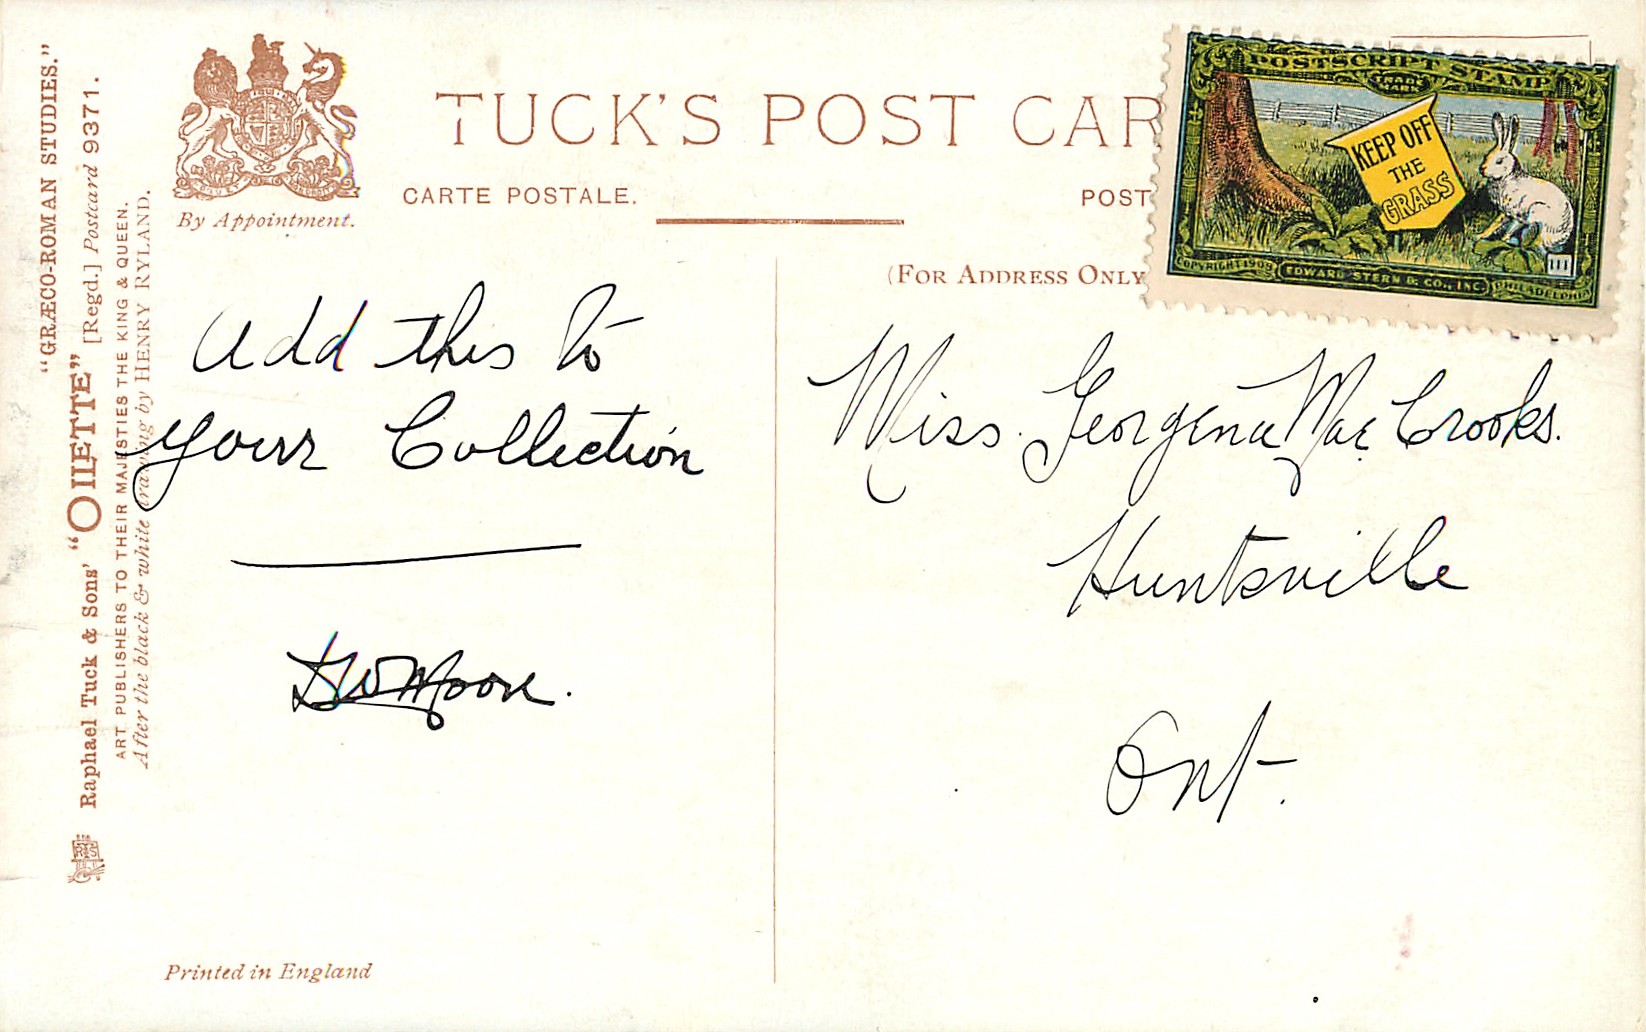 "GRÆCO-ROMAN STUDIES."
Raphael Tuck & Sons' "OILETTE" [Regd.] Postcard 9371.
ART PUBLISHERS TO THEIR MAJESTIES THE KING & QUEEN.
After the black & white drawing by HENRY RYLAND.
By Appointment.
TUCK'S POST CAR
CARTE POSTALE.
POST
(FOR ADDRESS ONLY
POSTSCRIPT STAMP
TRADE
MARK
KEEP OFF
THE
GRASS
COPYRIGHT 1909 EDWARD STERN & CO., INC. PHILADELPHIA
Add this to
your Collection
Moore.
Miss. Georgena Mac Crooks.
Huntsville
Ont.
Printed in England